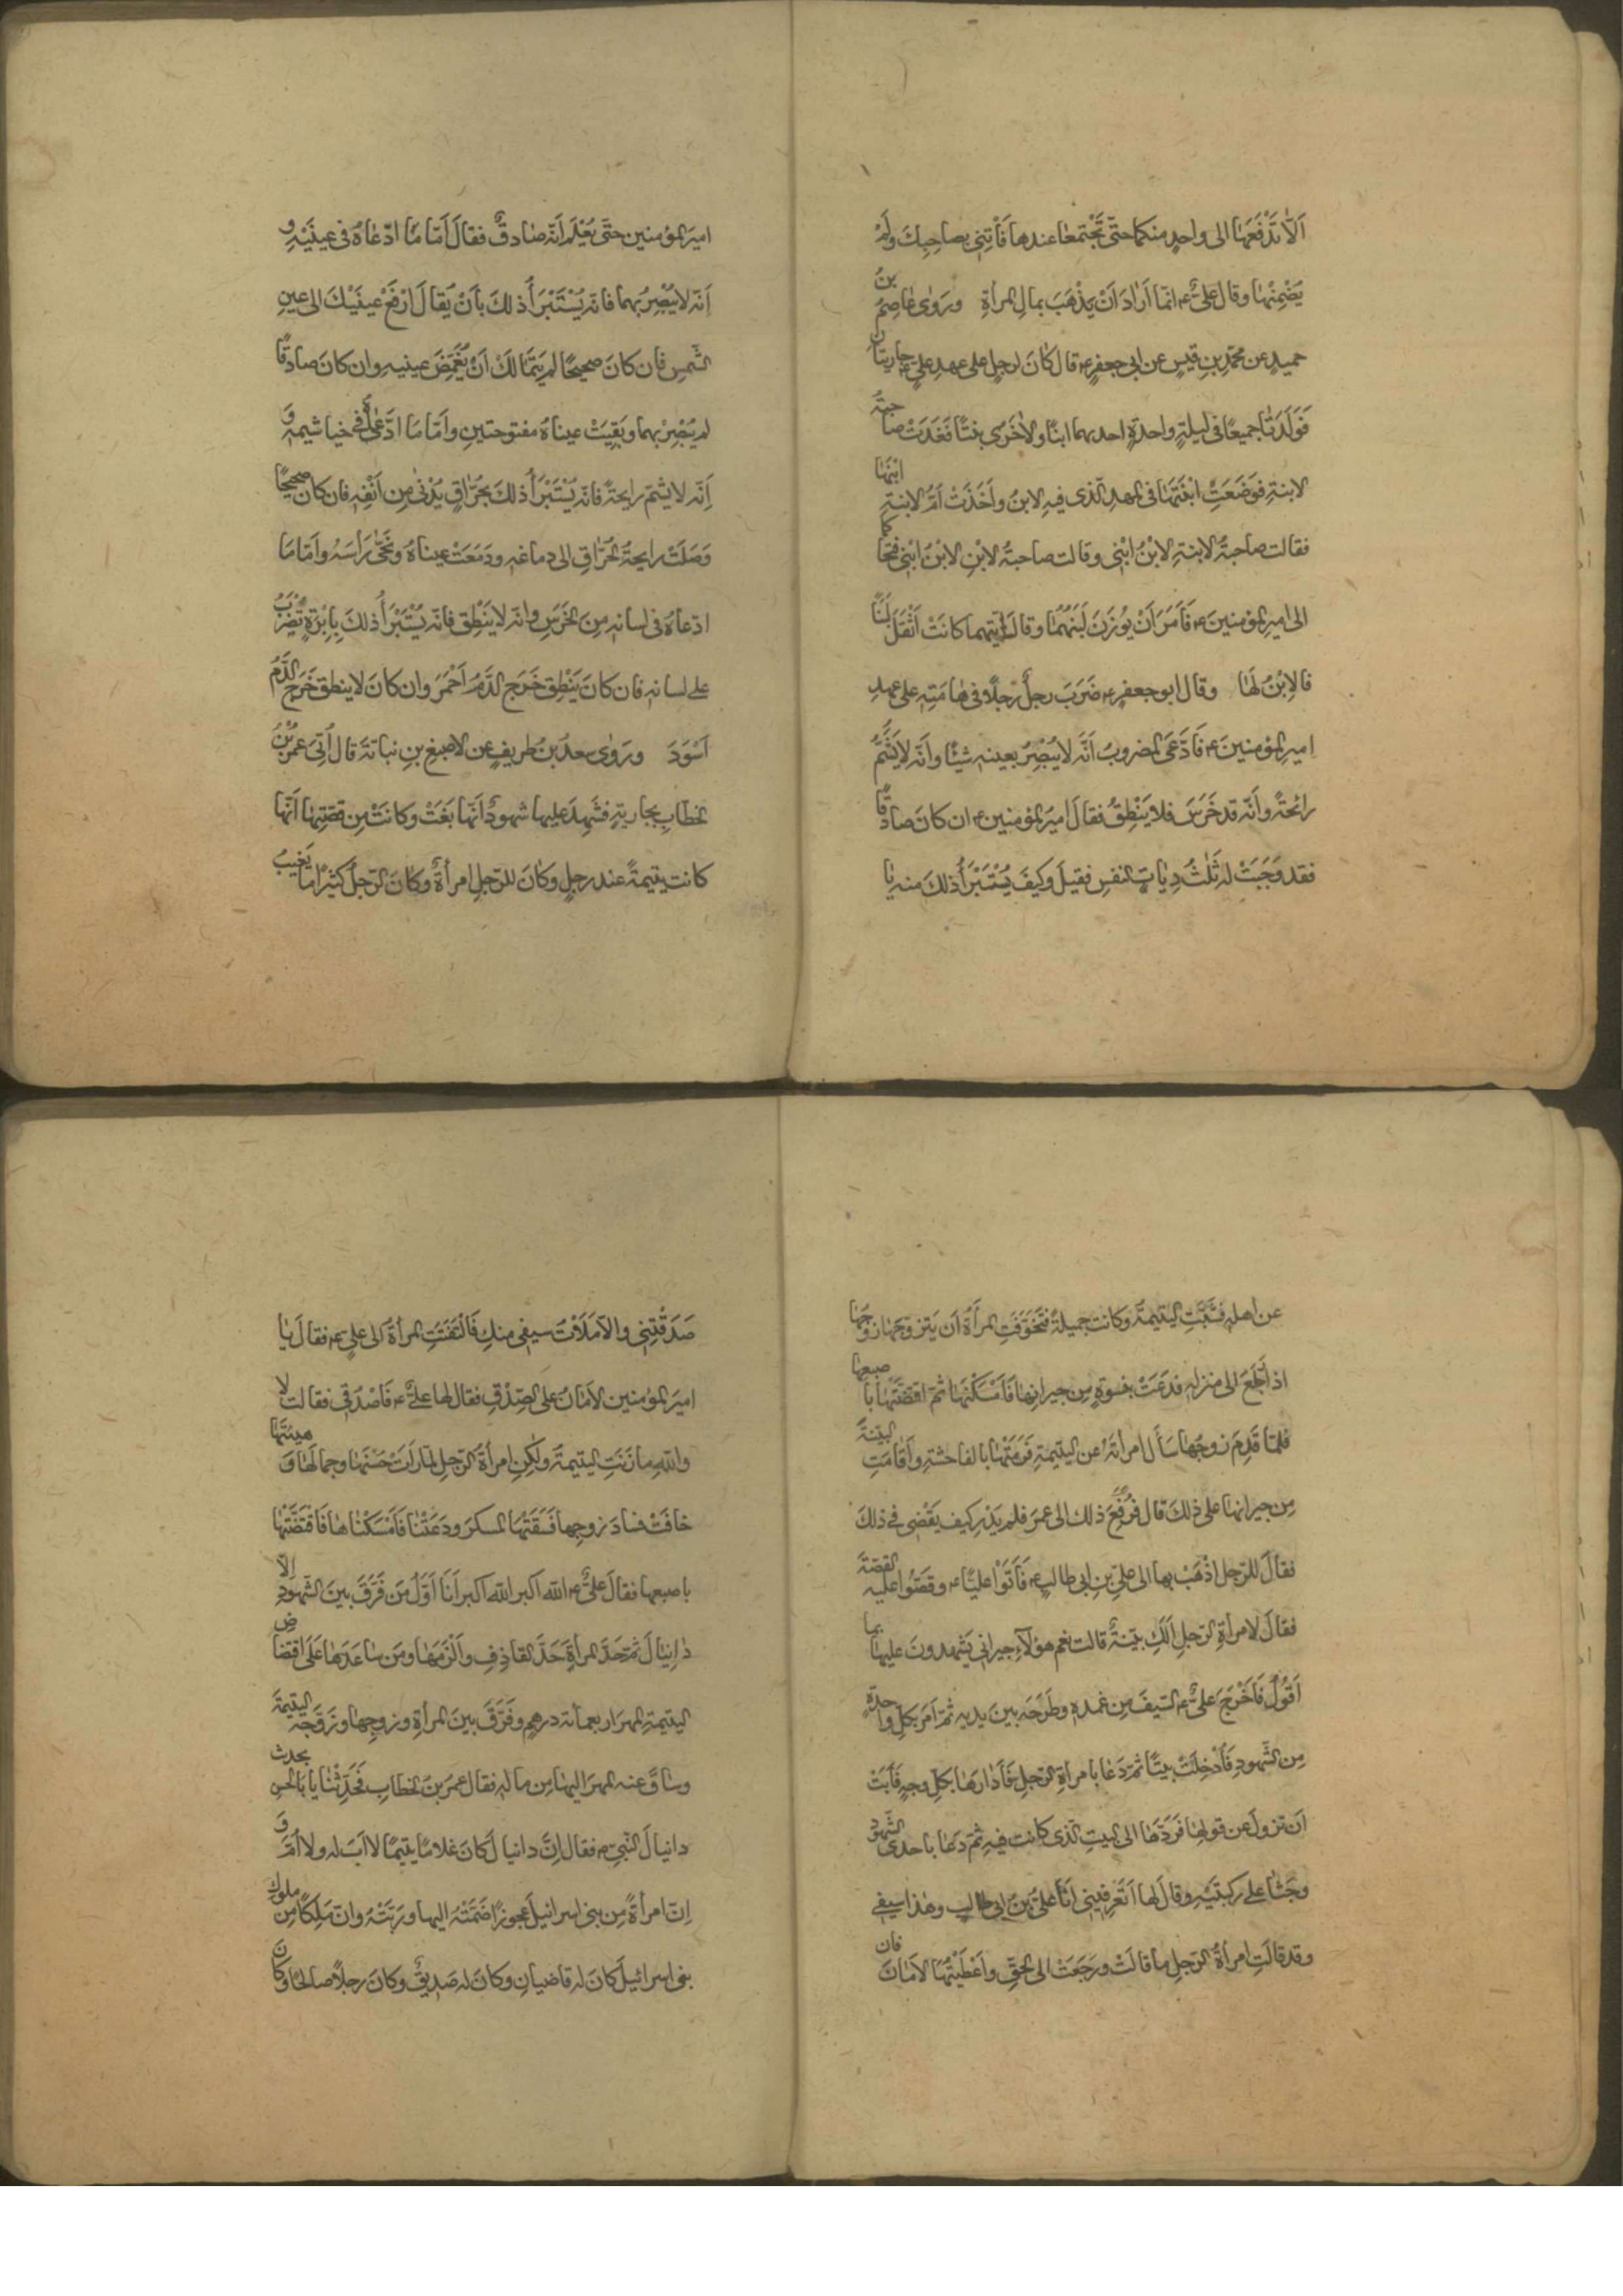 اَلَّا تَدْفَعَهٰا الى واحدٍ منكما حتّى تَجْتمعٰا عندها فَأْتِنى بصاحِبِكَ ولَمْ
يَضْمِنْهٰا وقال علىٌّ ع انّما اَرٰادَ اَنْ يَذْهَبَ بمالِ المرأةِ ورَوٰى عٰاصِمُ بنُ
حميدٍ عن محمّدِ بنِ قيسٍ عن ابى جعفرٍ ع قال كٰانَ لرجلٍ على عهدِ علىٍّ ع جاريتانِ
فَوَلَدَتٰا جميعًا فى ليلةٍ واحدةٍ احدىهما ابنًا والاُخْرٰى بنتًا فَغَدَتْ صاحبةُ
الابنةِ فوَضَعَتِ ابْنَتَهٰا فى المهدِ الّذى فيهِ الابنُ واَخَذَتْ اُمُّ الابنةِ ابْنَهٰا
فقالت صاحبةُ الابنةِ الابْنُ ابْنِى وقالت صاحبةُ الابْنِ الابْنُ ابْنِى فتحاكما
الى اميرِ المؤمنينَ ع فَاَمَرَ اَنْ يُوزَنَ لَبَنُهُمٰا وقال اَيّتهما كانَتْ اَثْقَلَ لَبَنًا
فالاِبْنُ لَهٰا وقال ابو جعفرٍ ع ضَرَبَ رجلٌ رَجُلًا فى هٰامَتِهِ على عهدِ
اميرِ المؤمنينَ ع فَادَّعَى المضروبُ اَنَّه لا يُبْصِرُ بعينهِ شيئًا واَنّه لا يَشَمُّ
رائحةً واَنّه قد خَرَسَ فلا يَنْطِقُ فقالَ اميرُ المؤمنين ع ان كانَ صادقًا
فقد وَجَبَتْ له ثَلٰثُ دِيٰاتِ النفسِ فقيلَ وَكيفَ يُسْتَبْرَأُ ذلكَ منه يٰا
اميرَ المؤمنين حتّى يُعْلَمَ اَنّه صٰادقٌ فقالَ اَمّا مٰا ادّعٰاهُ فى عينَيْهِ و
اَنّه لا يُبْصِرُ بهما فانّه يُسْتَبْرَأُ ذلكَ بأَنْ يُقالَ لَه اِرْفَعْ عينَيْكَ الى عينِ
الشّمسِ فان كانَ صحيحًا لم يَتَمٰالَكْ اَنْ يُغَمِّضَ عينيهِ وان كانَ صادقًا
لم يُبْصِرْ بهما وبَقِيَتْ عيناهُ مفتوحتينِ واَمّا مَا ادَّعٰاهُ فى خياشيمهِ وَ
اَنّه لا يشمّ رايحةً فانّه يُسْتَبْرَأُ ذلكَ بحُرٰاقٍ يُدْنٰى مِن اَنْفِهِ فان كان صحيحًا
وَصَلَتْ رايحةُ الحُرٰاقِ الى دماغهِ ودَمَعَتْ عيناهُ ونَحّٰى رَاْسَهُ واَمّا مَا
ادّعاهُ فى لسانهِ مِنَ الخَرَسِ وانّه لا يَنْطِق فانّه يُسْتَبْرَأُ ذلكَ بِاِبْرَةٍ تُضْرَبُ
على لسانهِ فان كانَ يَنْطِق خَرَجَ الدَّمُ اَحْمَرَ وان كانَ لا ينطق خَرَجَ الدَّمُ
اَسْوَدَ ورَوٰى سعدُ بنُ طريفٍ عن الاصبغِ بنِ نباتةَ قال اُتِىَ عمرُ بْنُ
الخطّابِ بجاريةٍ فشَهِدَ عليها شهودٌ اَنّها بَغَتْ وكانَتْ مِن قصّتِهٰا اَنَّها
كانت يتيمةً عند رجلٍ وكٰانَ للرّجلِ امرأةٌ وكانَ الرّجلُ كثيرًا ما يَغيبُ
عن اهلهِ فشَبَّتِ اليتيمةُ وكانت جميلةً فتَخَوّفَتِ المرأةُ اَن يَتزوجَهٰا زوجُهٰا
اذا رَجَعَ الى منزلهِ فدَعَتْ بنسوةٍ مِن جيرانِهٰا فَاَمْسَكْنَهٰا ثمّ افتضّتْهٰا باصبعِهٰا
فلمّا قَدِمَ زوجُهٰا سَأَلَ امرأتَهُ عن اليتيمةِ فَرَمَتْهٰا بالفاحشةِ واَقٰامَتِ البيّنةَ
مِن جيرانهٰا على ذلكَ قال فرُفِعَ ذلك الى عمرَ فلم يَدْرِ كيف يَقْضى فى ذلكَ
فقالَ للرّجلِ اذْهَبْ بها الى علىّ بنِ ابى طالبٍ ع فَأَتَوْا عليًّا ع وقَصُّوا عليهِ القصّةَ
فقالَ لامرأةِ الرّجلِ اَلَكِ بيّنةٌ قالت نعم هؤلآءِ جيرانى يَشْهدونَ عليهٰا بما
اَقُولُ فَاَخْرَجَ علىٌّ ع السّيفَ مِن غمدهِ وطَرَحَه بينَ يديهِ ثمّ اَمَرَ بكلِّ واحدةٍ
مِن الشّهودِ فَاُدْخِلَتْ بيتًا ثمّ دَعٰا بامرأةِ الرّجلِ فَاَدٰارَهٰا بكلِّ وجهٍ فَأَبَتْ
اَن تزولَ عن قولهٰا فَرَدَّهٰا الى البيتِ الّذى كانت فيهِ ثمّ دَعٰا باحدى الشّهودِ
وجَثٰا على ركبتَيْهِ وقالَ لها اَتَعْرِفينى اَنَا علىُّ بْنُ ابى طالبٍ وهٰذا سيفى
وقد قالَتِ امرأةُ الرّجلِ ما قالَتْ ورَجَعَتْ الى الحقِّ واَعْطَيْتُهَا الامٰانَ فان
صَدَقْتِنى والّا مَلَاْتُ سيفى منكِ فَالْتَفَتَتِ المرأةُ الى علىٍّ ع فقالَ يٰا
اميرَ المؤمنين الامٰانُ على الصِدْقِ فقال لها علىٌّ ع فَاصْدُقى فقالت لا
واللّٰهِ ما زَنَتِ اليتيمةُ ولٰكنِ امرأةُ الرّجلِ لمّا رَاَتْ حُسْنَهٰا وجمالَهٰا وَ هيئتَهٰا
خافَتْ فسادَ زوجِها فَسَقَتْهَا المسكرَ ودَعَتْنٰا فَاَمْسَكْنٰاهٰا فَافْتَضَّتْهٰا
باصبعِها فقالَ علىٌّ ع اللّٰه اكبر اللّٰه اكبر اَنَا اَوّلُ مَن فَرَّقَ بينَ الشّهودِ اِلّا
دٰانِيٰالَ ثمّ حَدَّ المرأةَ حَدَّ القاذِفِ واَلْزَمَهٰا ومَن سٰاعَدَهٰا عَلَى افتضاضِ
اليتيمةِ المهرَ اربعمائة درهمٍ وفَرَّقَ بينَ المرأةِ وزوجِها وزَوَّجَه اليتيمةَ
وسٰاقَ عنه المهرَ اليهٰا مِن مالهِ فقال عمرُ بنُ الخطابِ فَحَدِّثْنٰا يا بَا الحسنِ بحديث
دانيالَ النّبىّ ع فقال اِنَّ دانيالَ كانَ غلامًا يتيمًا لا اَبَ له ولا اُمَّ وَ
اِنّ امرأةً مِن بنى اسرائيلَ عجوزًا ضَمَّتْهُ اليها ورَبَّتْهُ وانّ مَلِكًا مِن ملوكِ
بنى اسرائيلَ كانَ له قاضيانِ وكانَ له صَديقٌ وكانَ رجلًا صالحًا وكانَ